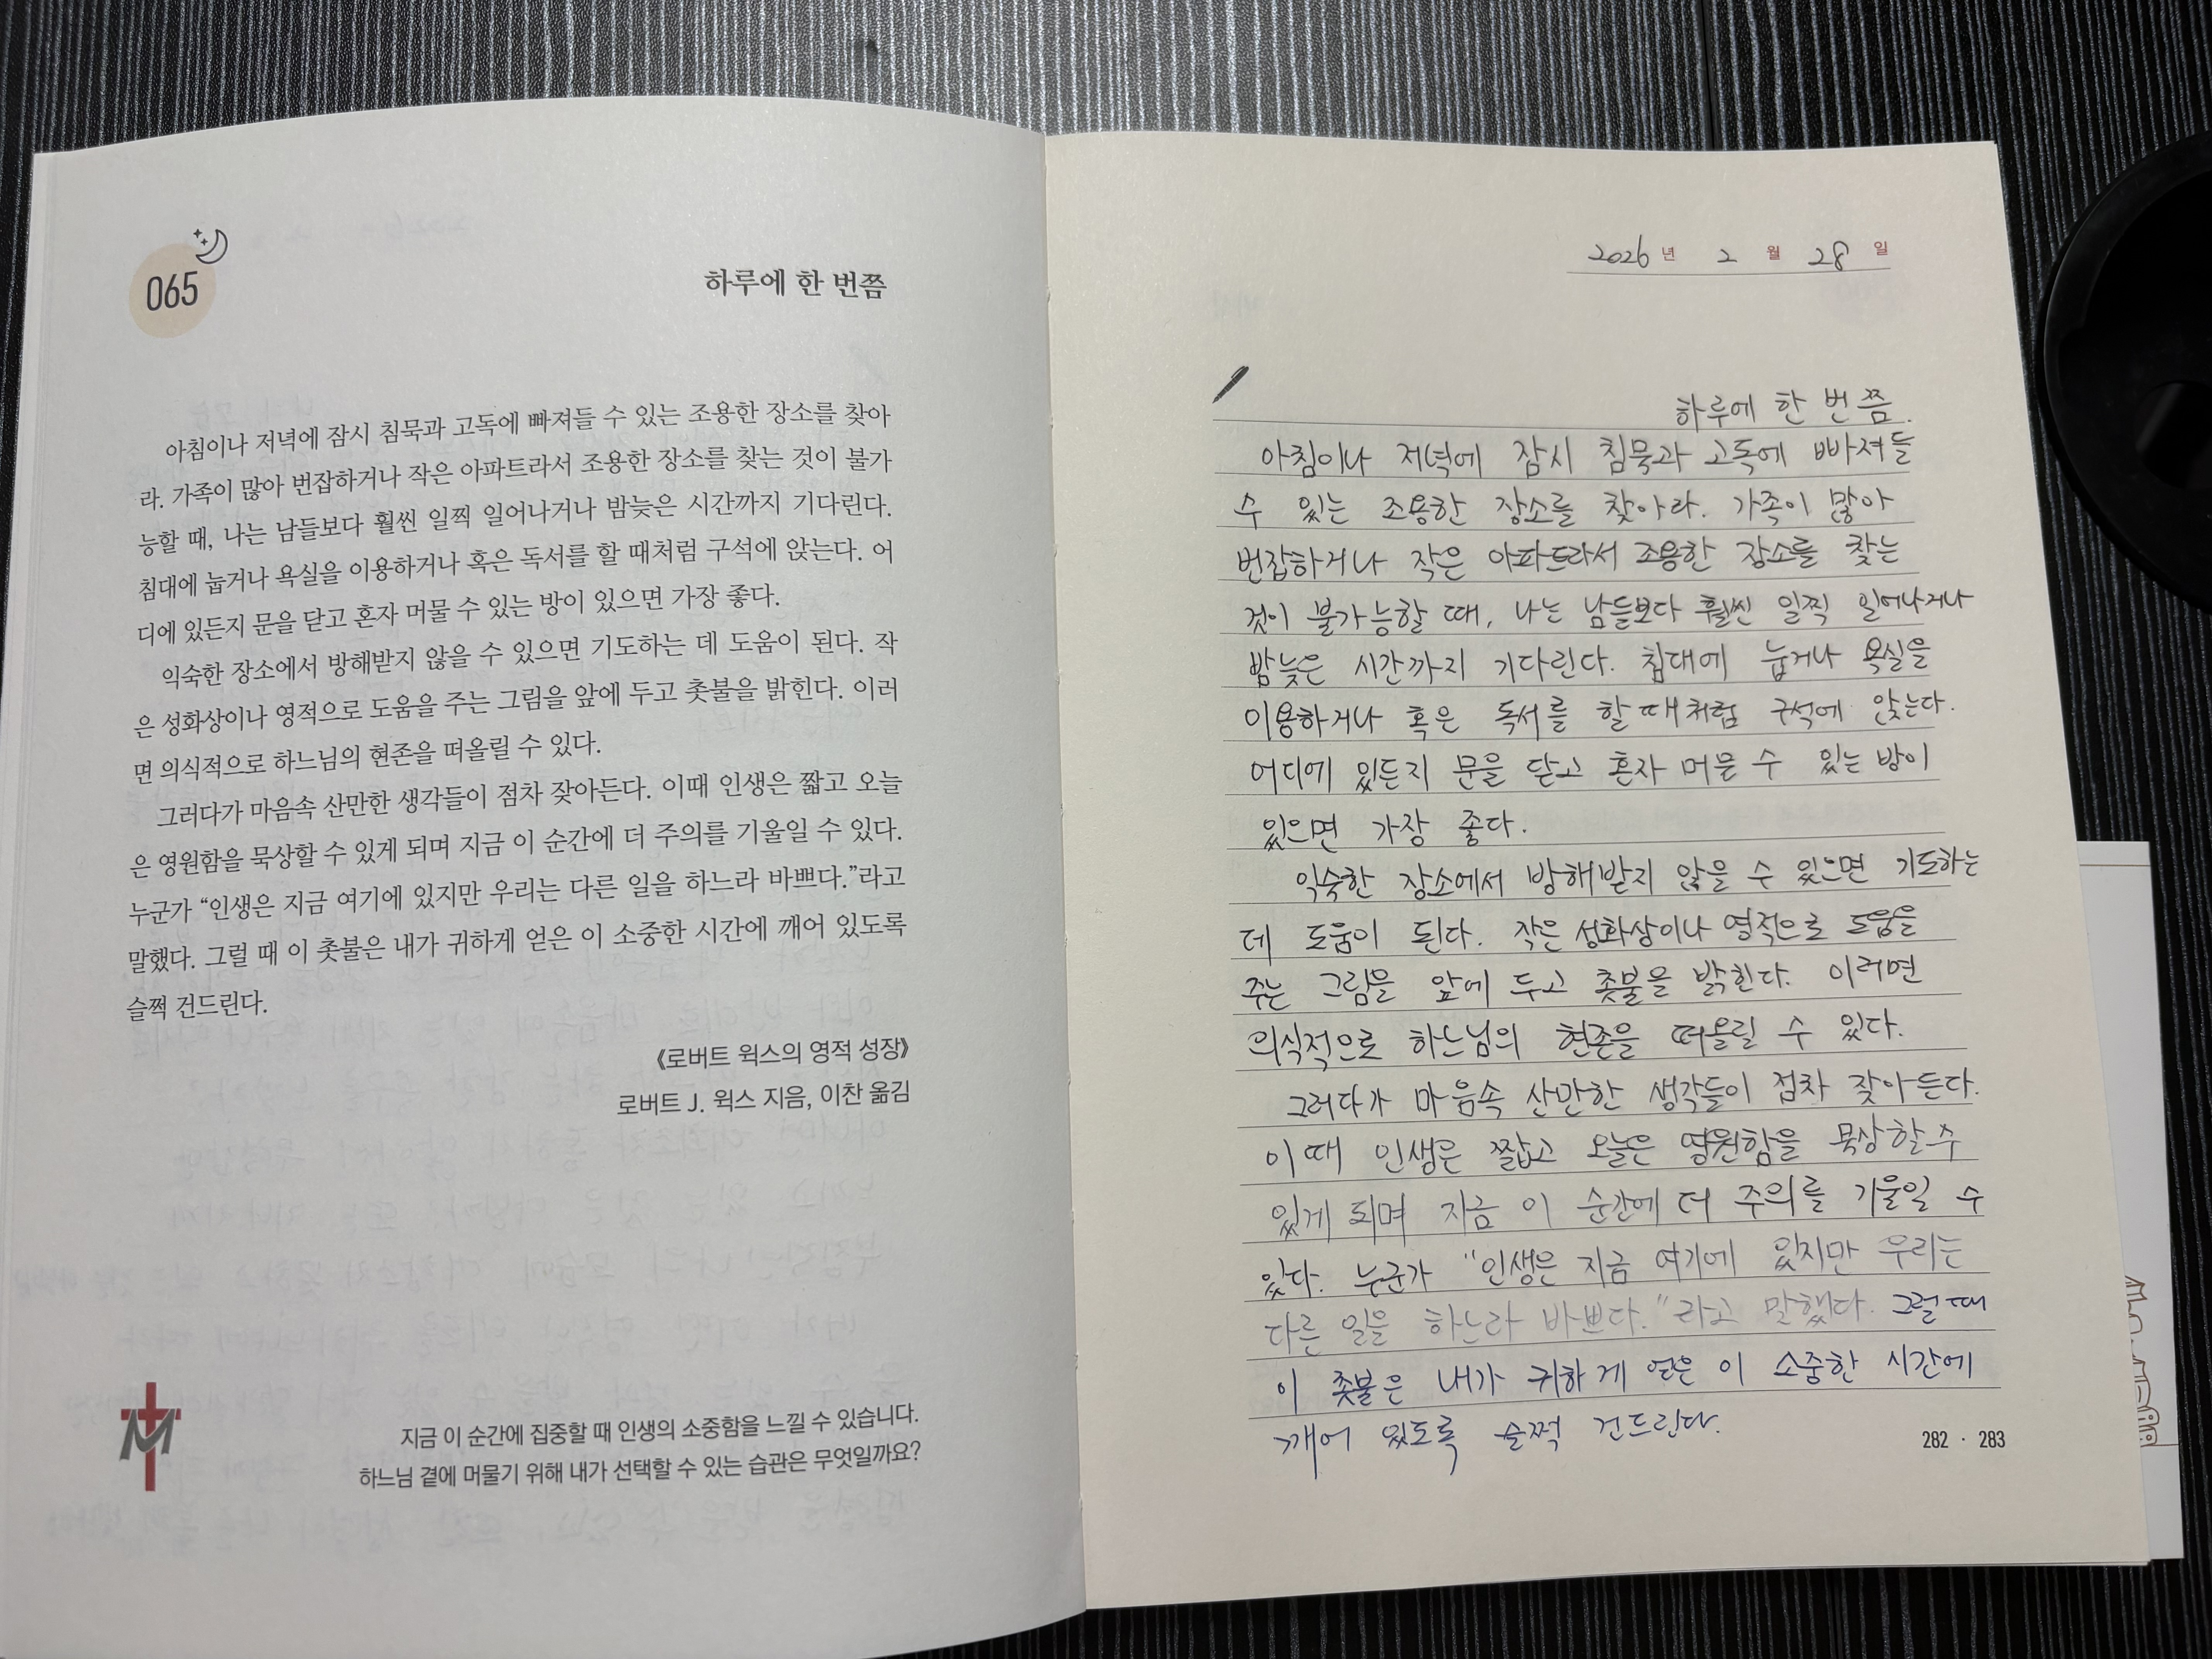 065
하루에 한 번쯤
아침이나 저녁에 잠시 침묵과 고독에 빠져들 수 있는 조용한 장소를 찾아
라. 가족이 많아 번잡하거나 작은 아파트라서 조용한 장소를 찾는 것이 불가
능할 때, 나는 남들보다 훨씬 일찍 일어나거나 밤늦은 시간까지 기다린다.
침대에 눕거나 욕실을 이용하거나 혹은 독서를 할 때처럼 구석에 앉는다. 어
디에 있든지 문을 닫고 혼자 머물 수 있는 방이 있으면 가장 좋다.
익숙한 장소에서 방해받지 않을 수 있으면 기도하는 데 도움이 된다. 작
은 성화상이나 영적으로 도움을 주는 그림을 앞에 두고 촛불을 밝힌다. 이러
면 의식적으로 하느님의 현존을 떠올릴 수 있다.
그러다가 마음속 산만한 생각들이 점차 잦아든다. 이때 인생은 짧고 오늘
은 영원함을 묵상할 수 있게 되며 지금 이 순간에 더 주의를 기울일 수 있다.
누군가 “인생은 지금 여기에 있지만 우리는 다른 일을 하느라 바쁘다.”라고
말했다. 그럴 때 이 촛불은 내가 귀하게 얻은 이 소중한 시간에 깨어 있도록
슬쩍 건드린다.
《로버트 윅스의 영적 성장》
로버트 J. 윅스 지음, 이찬 옮김
M
지금 이 순간에 집중할 때 인생의 소중함을 느낄 수 있습니다.
하느님 곁에 머물기 위해 내가 선택할 수 있는 습관은 무엇일까요?
2026 년 2 월 28 일
하루에 한 번쯤.
아침이나 저녁에 잠시 침묵과 고독에 빠져들
수 있는 조용한 장소를 찾아라. 가족이 많아
번잡하거나 작은 아파트라서 조용한 장소를 찾는
것이 불가능할 때, 나는 남들보다 훨씬 일찍 일어나거나
밤늦은 시간까지 기다린다. 침대에 눕거나 욕실을
이용하거나 혹은 독서를 할 때처럼 구석에 앉는다.
어디에 있든지 문을 닫고 혼자 머물 수 있는 방이
있으면 가장 좋다.
익숙한 장소에서 방해받지 않을 수 있으면 기도하는
데 도움이 된다. 작은 성화상이나 영적으로 도움을
주는 그림을 앞에 두고 촛불을 밝힌다. 이러면
의식적으로 하느님의 현존을 떠올릴 수 있다.
그러다가 마음속 산만한 생각들이 점차 잦아든다.
이때 인생은 짧고 오늘은 영원함을 묵상할 수
있게 되며 지금 이 순간에 더 주의를 기울일 수
있다. 누군가 "인생은 지금 여기에 있지만 우리는
다른 일을 하느라 바쁘다."라고 말했다. 그럴 때
이 촛불은 내가 귀하게 얻은 이 소중한 시간에
깨어 있도록 슬쩍 건드린다.
282 · 283